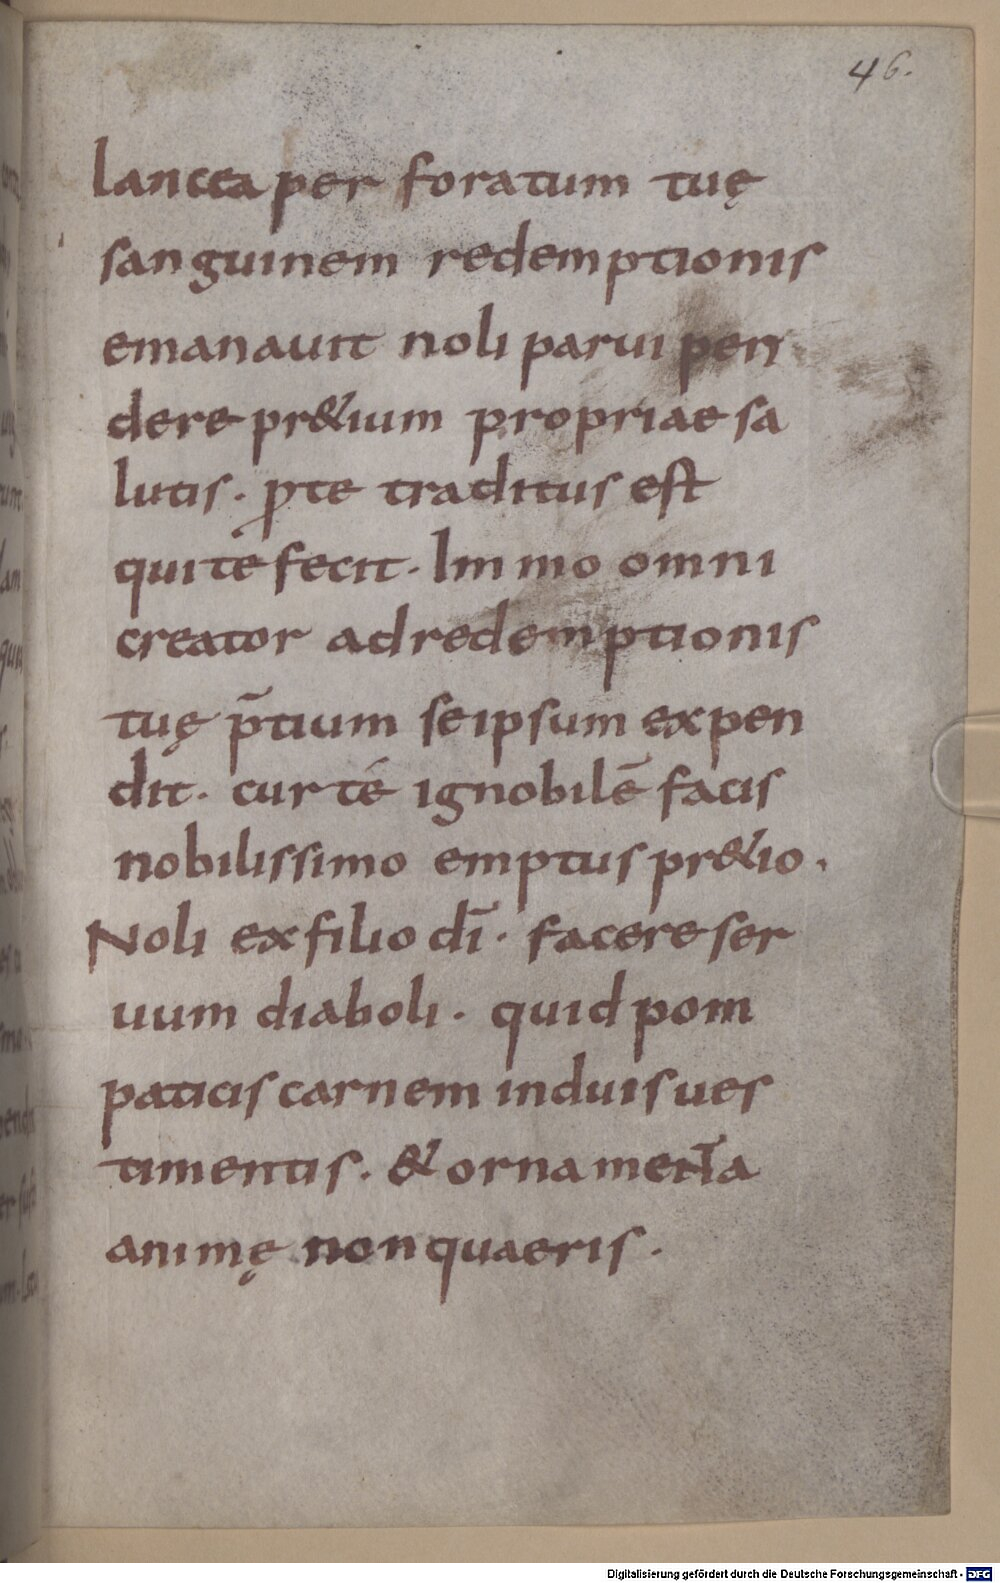 46.
lancea per foratum tuę
sanguinem redemptionis
emanauit noli parui pen
dere pr&ium propriae sa
lutis. ꝓte traditus est
qui te fecit. Immo omni
creator ad redemptionis
tuę p̄tium se ipsum expen
dit. cur té ignobilē facis
nobilissimo emptus pr&io.
Noli ex filio dī. facere ser
uum diaboli. quid pom
paticis carnem induis ues
timentis. & ornamenta
animę non quaeris.
Digitalisierung gefördert durch die Deutsche Forschungsgemeinschaft - DFG